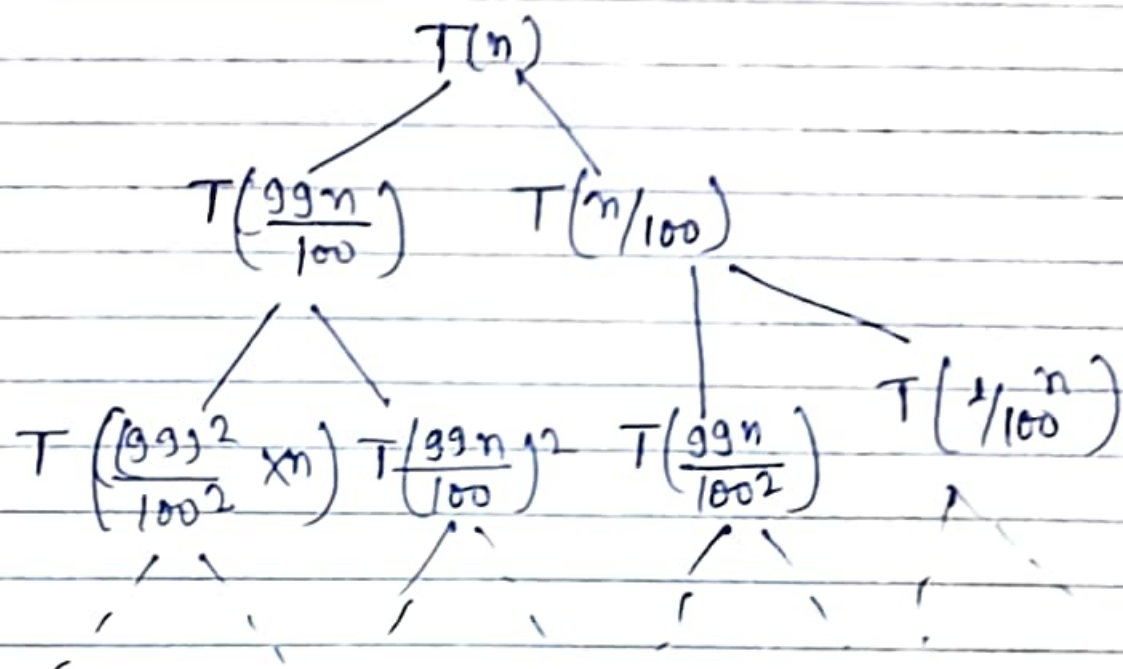 T(n)
T(99n/100) T(n/100)
T((99)²/100² ×n) T(99n/100)² T(99n/100²) T(1/100 n)